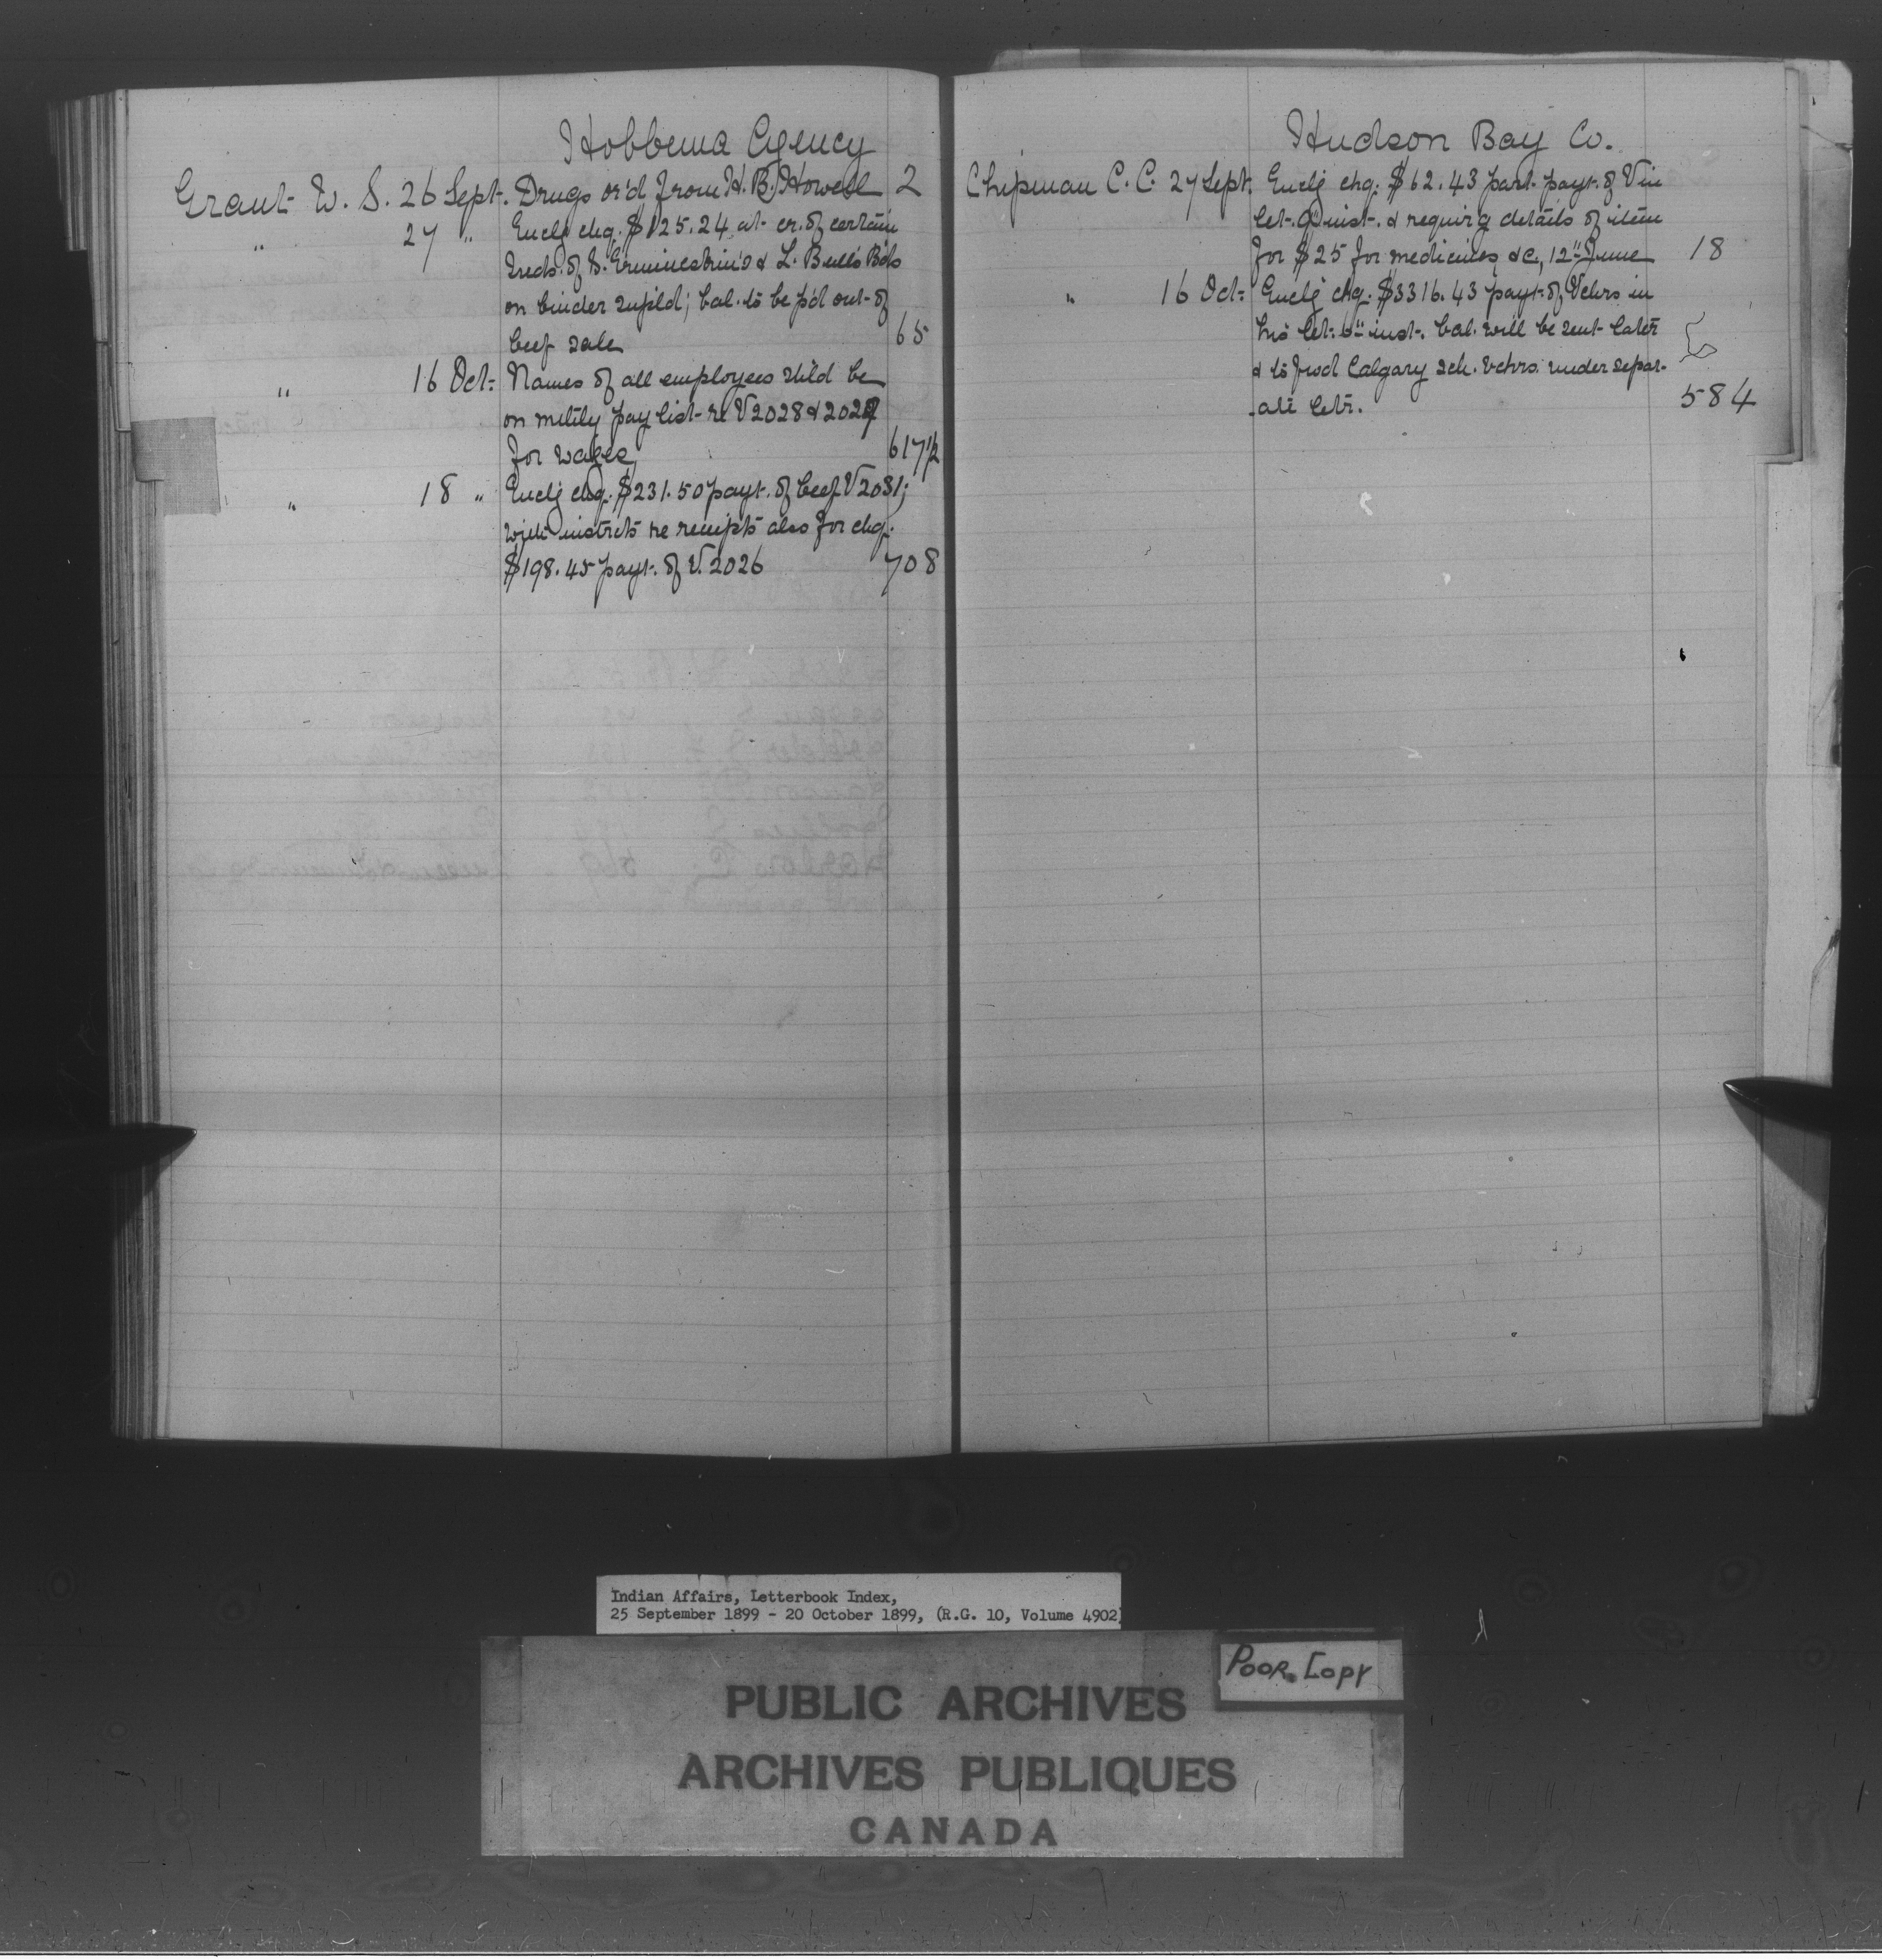 Hobbema Agency
Grant W. S. 26 Sept. Drugs or'd from H. B. Howell 2
" 27 " Enclg chq. $125.24 at cr. of certain
Inds. of S. Ermineskin's & L. Bull's Bds
on binder supld; bal. to be p'd out of
beef sale 65
" 16 Oct. Names of all employees shld be
on mthly pay list re V 2028 & 2029
for wages 617 1/2
" 18 " Enclg chq. $231.50 payt. of beef V 2031;
with instrcts re receipts also for chq.
$198.45 payt. of V. 2026 708
Hudson Bay Co.
Chipman C. C. 27 Sept. Enclg chq. $62.43 part payt. of V in
let. inst. & requirg details of item
for $25 for medicines &c., 12" June 18
" 16 Oct. Enclg chq. $3316.43 payt. of Vchrs in
his let. 6" inst. bal. will be sent later
& to frwd Calgary sch. vchrs. under separ-
ate letr. 584
Indian Affairs, Letterbook Index,
25 September 1899 - 20 October 1899, (R.G. 10, Volume 4902)
Poor Copy
PUBLIC ARCHIVES
ARCHIVES PUBLIQUES
CANADA